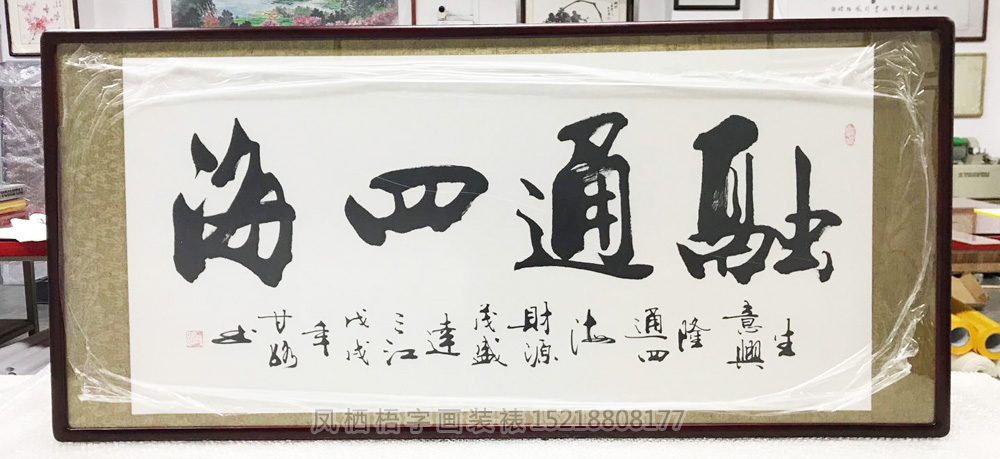 融通四海
生意興隆通四海財源茂盛達三江戊戌年甘路書
凤栖梧字画装裱15218808177